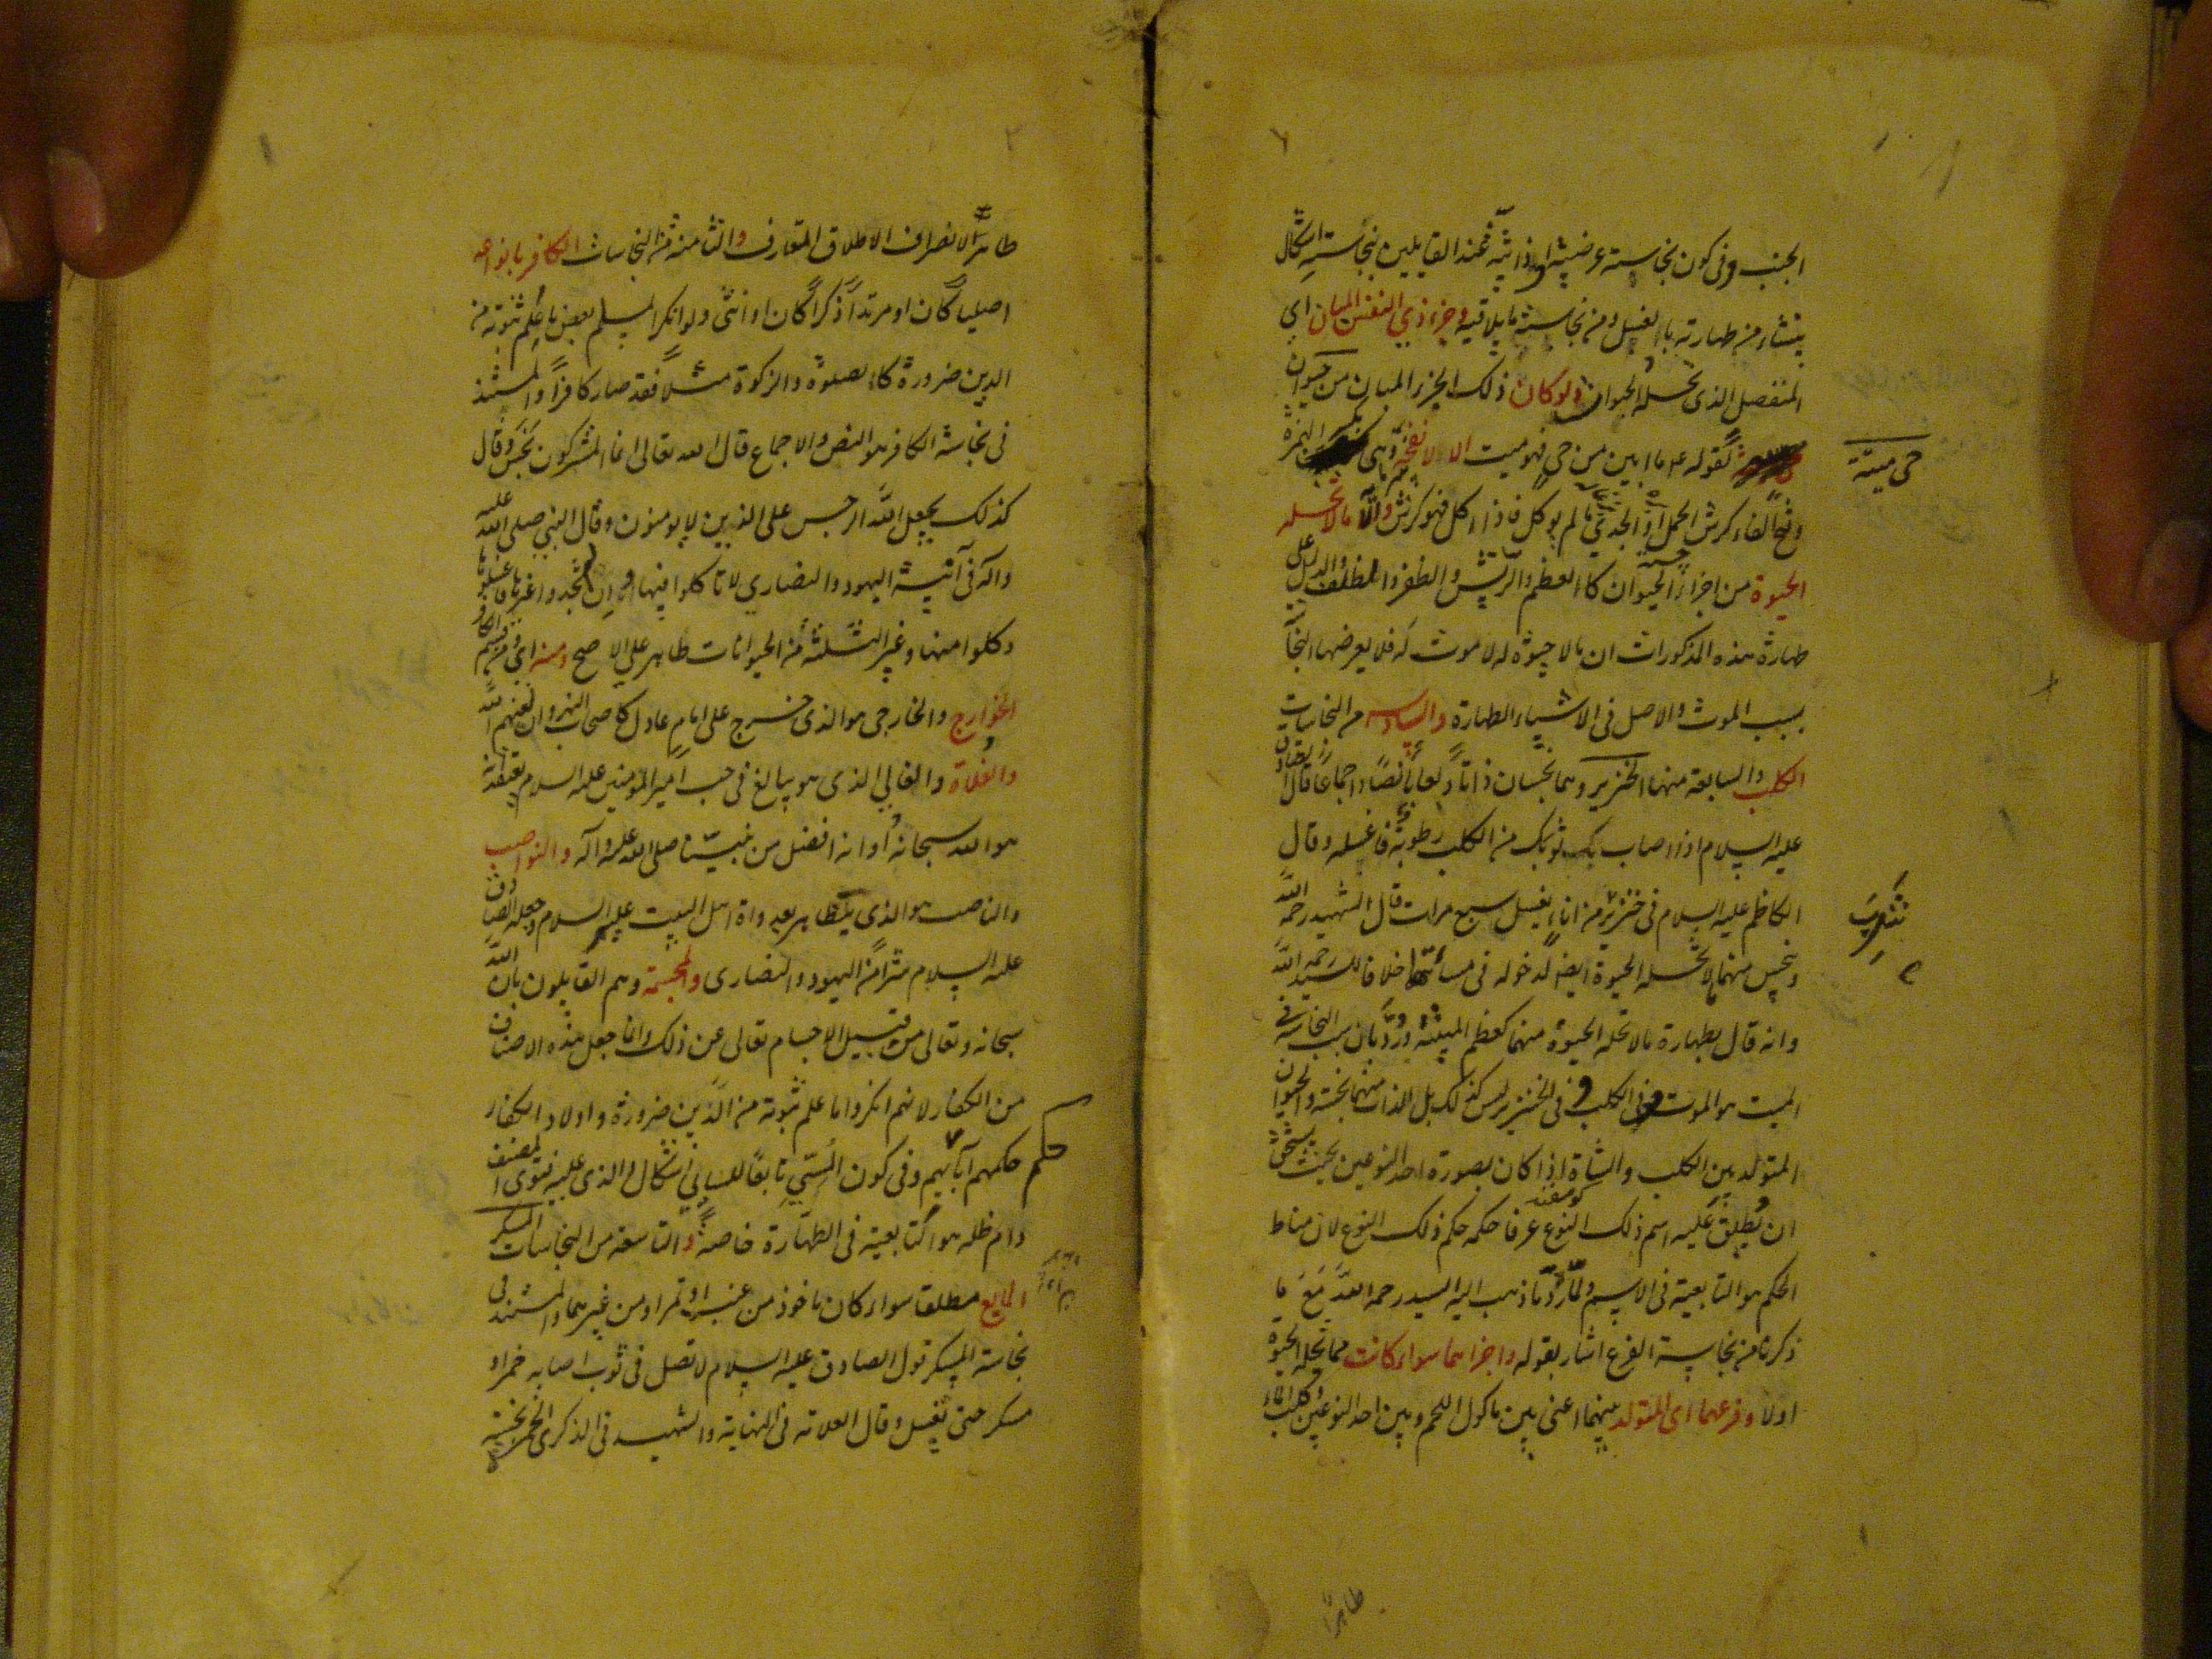 الجنب وفى كون نجاسته عرضية او ذاتية فعند القايلين بنجاسته اشكال
ينشاء من طهارته بالغسل ومن نجاسة ما يلاقيه وجزء ذي النفس المبان اي
المنفصل الذى تحله الحيوة ولو كان ذلك الجزء المبان من حيوان
حى ميتة
لقوله ع ما ابين من حى فهو ميت الا الانفحة وهى بكسر الهمزة
وفتح الفاء كرش الحمل او الجدي ما لم يوكل فاذا اكل فهو كرش والا ما لا تحله
الحيوة من اجزاء الحيوان كالعظم والريش والظفر والظلف والدليل على
طهارة هذه المذكورات ان ما لا حيوة له لا موت له فلا يعرضها النجاسة
بسبب الموت والاصل فى الاشياء الطهارة والسادسه من النجاسات
الكلب والسابعة منها الخنزير وهما نجسان ذاتا ولعابا نصا واجماعا قال الصادق
عليه السلام اذا اصاب ثوبك من الكلب رطوبة فاغسله وقال
الكاظم عليه السلام فى خنزير شرب من اناء يغسل سبع مرات قال الشهيد رحمه الله
وينجس منهما ما لا تحله الحيوة ايضا لدخوله فى مسماها خلافا للسيد رحمه الله
وانه قال بطهارة ما لا تحله الحيوة منهما كعظم الميتة ورد بان سبب النجاسة فى
الميت هو الموت وفى الكلب وفى الخنزير ليس كذلك بل الذات منهما نجسة والحيوان
المتولد بين الكلب والشاة اذا كان بصورة احد النوعين بحيث يستحق
ان يطلق عليه اسم ذلك النوع عرفا حكمه حكم ذلك النوع لان مناط
الحكم هو التابعية فى الاسم ولما رد ما ذهب اليه السيد رحمه الله مع ما
ذكره من نجاسة الفرع اشار بقوله واجزاهما سواء كانت مما تحله الحيوة
اولا وفرعهما اى المتولد منهما اعنى بين ماكول اللحم وبين احد النوعين وكلب الماء
طاهرا
طاهر الانصراف الاطلاق المتعارف والثامنة من النجاسات الكافر بانواعه
اصليا كان او مرتدا ذكرا كان او انثى ولو انكر المسلم بعض ما علم ثبوته من
الدين ضرورة كالصلوة والزكوة مثلا فقد صار كافرا والمستند
فى نجاسة الكافر هو النص والاجماع قال الله تعالى انما المشركون نجس وقال
كذلك يجعل الله الرجس على الذين لا يومنون وقال النبي صلى الله عليه
وآله فى آنية اليهود والنصاري لا تاكلوا فيها وان لم تجدوا غيرها فاغسلوها
وكلوا منها وغير الثلثة من الحيوانات طاهر على الاصح ومنه اى من قسم الكافر
الخوارج والخارجى هو الذى خرج على امام عادل كاصحاب النهروان لعنهم الله
والغلاة والغالي الذى هو يبالغ فى حب امير المومنين عليه السلام يعتقد انه
هو الله سبحانه او انه افضل من نبينا صلى الله عليه وآله والنواصب
والناصب هو الذى يتظاهر بعداوة اهل البيت عليهم السلام وجعله الصادق
عليه السلام شرا من اليهود والنصارى والمجسمة وهم القايلون بان الله
سبحانه وتعالى من قبيل الاجسام تعالى عن ذلك وانما جعل هذه الاصناف
من الكفار لانهم انكروا ما علم ثبوته من الدين ضرورة واولاد الكفار
حكم
حكمهم آبايهم وفى كون المسبي تابعا للسابي اشكال والذى عليه فتوى المصنف
دام ظله هو التابعية فى الطهارة خاصة والتاسعة من النجاسات المسكر
المايع مطلقا سواء كان ماخوذ من عنب او تمر او من غيرهما والمستند فى
نجاسة المسكر قول الصادق عليه السلام لا تصل فى ثوب اصابه خمر او
مسكر حتى يغسل وقال العلامه فى النهاية والشهيد فى الذكرى الخمر نجسة